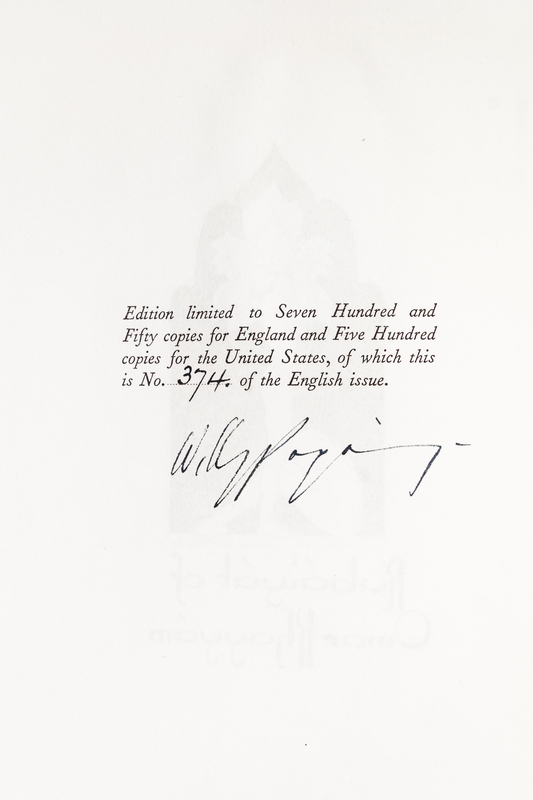 Edition limited to Seven Hundred and
Fifty copies for England and Five Hundred
copies for the United States, of which this
is No. 374. of the English issue.
Willy Pogány
Rubáiyát of
Omar Khayyám